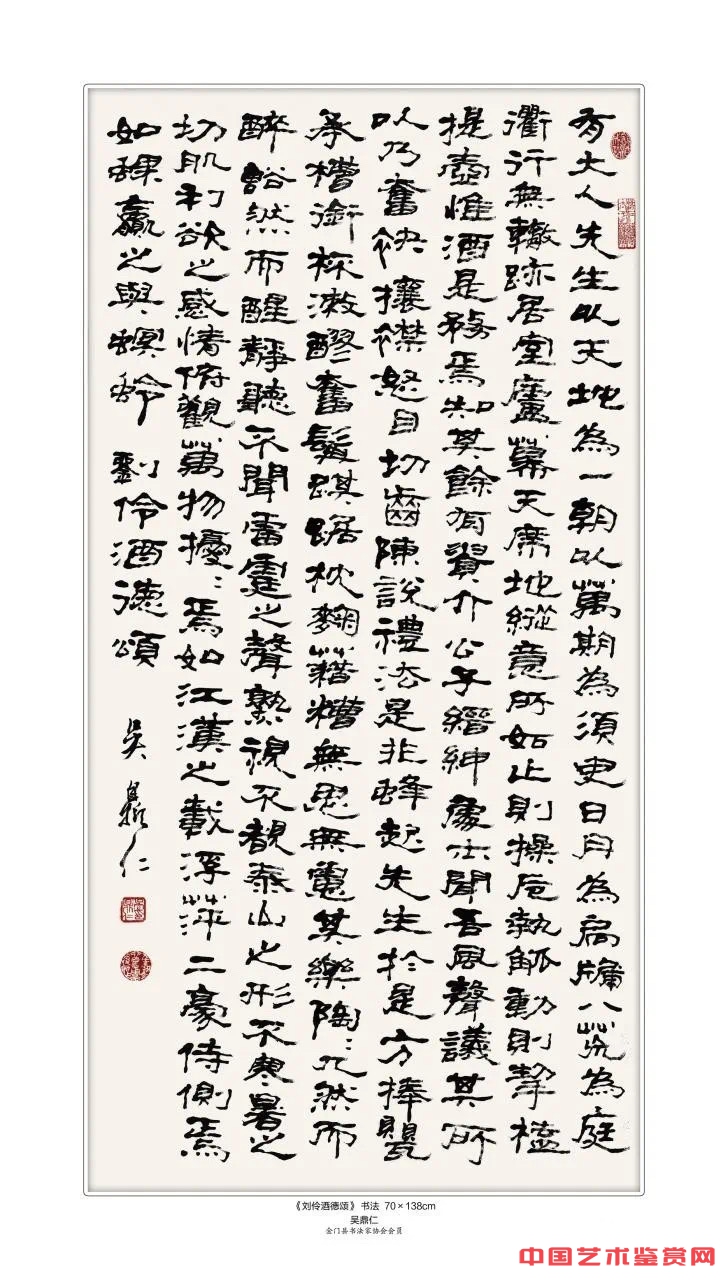 有大人先生以天地為一朝以萬期為須臾日月為扃牖八荒為庭
衢行無轍跡居室廬幕天席地縱意所如止則操卮執觚動則挈榼
提壺惟酒是務焉知其餘有貴介公子縉紳處士聞吾風聲議其所
以乃奮袂攘襟怒目切齒陳說禮法是非蜂起先生於是方捧甖
承槽銜杯漱醪奮髯踑踞枕麴藉糟無思無慮其樂陶：兀然而
醉豁然而醒靜聽不聞雷霆之聲熟視不覩泰山之形不寒暑之
切肌利欲之感情俯觀萬物擾：焉如江漢之載浮萍二豪侍側焉
如蜾蠃之與螟蛉 劉伶酒德頌 吳鼎仁
《刘伶酒德颂》 书法 70×138cm
吴鼎仁
金门县书法家协会会员
中国艺术鉴赏网